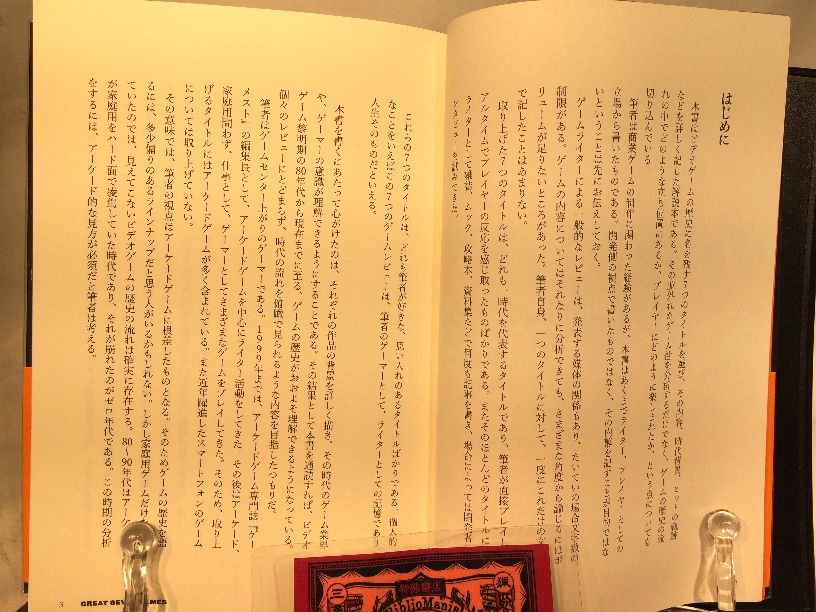 はじめに
本書はビデオゲームの歴史に名を残す7つのタイトルを選び、その内容、時代背景、ヒットの軌跡
などを詳しく記した解説本である。その並外れたゲーム性を分析するだけでなく、ゲームの歴史の流
れの中でどのような立ち位置にあるか、プレイヤーにどのように楽しまれたか、という点についても
切り込んでいる。
筆者は商業ゲームの制作に関わった経験があるが、本書はあくまでライター、プレイヤーとしての
立場から書いたものである。開発側の視点で書いたものではなく、その内幕を記すことが目的ではな
いということは先にお伝えしておく。
ゲームライターによる一般的なレビューは、発表する媒体の関係もあり、たいていの場合文章量の
制限がある。ゲームの内容についてはそれなりに分析できても、さまざまな角度から論じるにはボ
リュームが足りないところがあった。筆者自身、一つのタイトルに対して、一度にこれだけの
で記したことはあまりない。
取り上げた7つのタイトルは、どれも一時代を代表するタイトルであり、筆者が直接プレイ
アルタイムでプレイヤーの反応を感じ取ったものばかりである。またそのほとんどのタイトルに
ラノターとして雑誌、ムック、攻略本、資料集などで何度も記事を書き、場合によっては開発者
を試みてきた。
これらの7つのタイトルは、どれも筆者が好きな、思い入れのあるタイトルばかりである。個人的
なことをいえばこの7つのゲームレビューは、筆者のゲーマーとして、ライターとしての記憶であり
人生そのものだといえる。
本書を書くにあたって心がけたのは、それぞれの作品の背景を詳しく描き、その時代のゲーム業界
や、ゲーマーの意識が理解できるようにすることである。その結果として本書を通読すれば、ビデオ
ゲーム黎明期の80年代から現在までに至る、ゲームの歴史がおおよそ理解できるようになっている。
個々のレビューにとどまらず、時代の流れを俯瞰で見られるような内容を目指したつもりだ。
筆者はゲームセンター上がりのゲーマーである。1999年までは、アーケードゲーム専門誌『ゲー
メスト』の編集長として、アーケードゲームを中心にライター活動をしてきた。その後はアーケード、
家庭用問わず、仕事として、ゲーマーとしてさまざまなゲームをプレイしてきた。そのため、取り上
げるタイトルにはアーケードゲームが多く含まれている。また近年躍進したスマートフォンのゲーム
については取り上げていない。
その意味では、筆者の視点はアーケードゲームに根差したものとなる。そのためゲームの歴史を語
るには、多少偏りのあるラインナップだと思う人がいるかもしれない。しかし家庭用ゲームだけ
ていたのでは、見えてこないビデオゲームの歴史の流れは確実に存在する。80〜90年代はアーケ
が家庭用をハード面で凌駕していた時代であり、それが崩れたのがゼロ年代である。この時期の分析
をするには、アーケード的な見方が必須だと筆者は考える。
3 GREAT SEV GAMES
特殊書店
BiblioMania